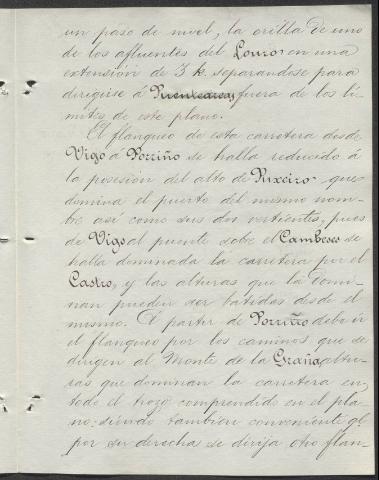 un paso de nivel, la orilla de uno
de los afluentes del Louro en una
extensión de 3 k. separandose para
dirigirse á Puenteareas, fuera de los lí-
mites de este plano.
El flanqueo de esta carretera desde
Vigo á Porriño se halla reducido á
la posesión del alto de Puxeiro que
domina el puerto del mismo nom-
bre así como sus dos vertientes, pues
de Vigo al puente sobre el Cambeses se
halla dominada la carretera por el
Castro, y las alturas que la domi-
nan pueden ser batidas desde el
mismo. A partir de Porriño debe ir
el flanqueo por los caminos que se
dirigen al Monte de la Graña, altu-
ras que dominan la carretera en
todo el trozo comprendido en el pla-
no; siendo tambien conveniente qe.
por su derecha se dirija otro flan-